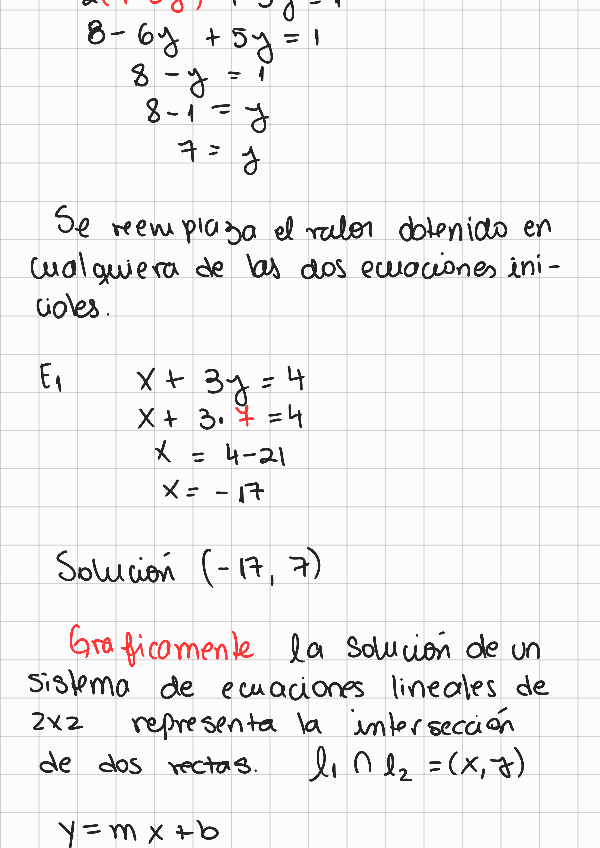 8 - 6y + 5y = 1
8 - y = 1
8 - 1 = y
7 = y
Se reemplaza el valor obtenido en
cualquiera de las dos ecuaciones ini-
ciales.
E1 x + 3y = 4
x + 3. 7 = 4
x = 4-21
x = -17
Solución (-17, 7)
Graficamente la solución de un
sistema de ecuaciones lineales de
2x2 representa la intersección
de dos rectas. l1 ∩ l2 = (x, y)
y = m x + b